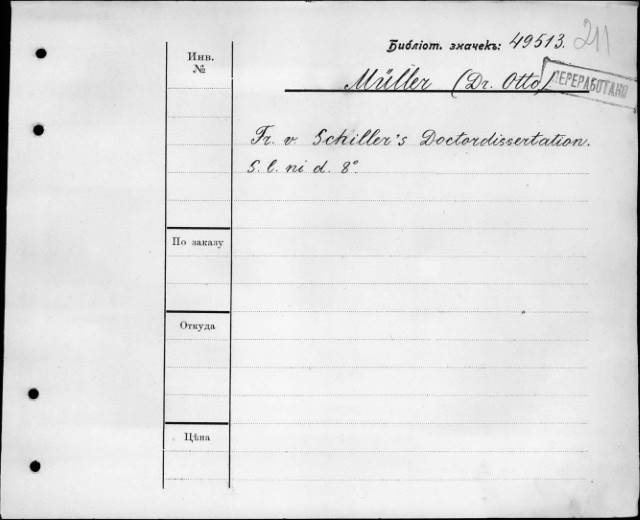 Библіот. значекъ: 49513.
211
Инв.
№
Müller (Dr. Otto)
ПЕРЕРАБОТАНО
Fr. v. Schiller's Doctordissertation.
S. l. ni d. 8°.
По заказу
Откуда
Цѣна